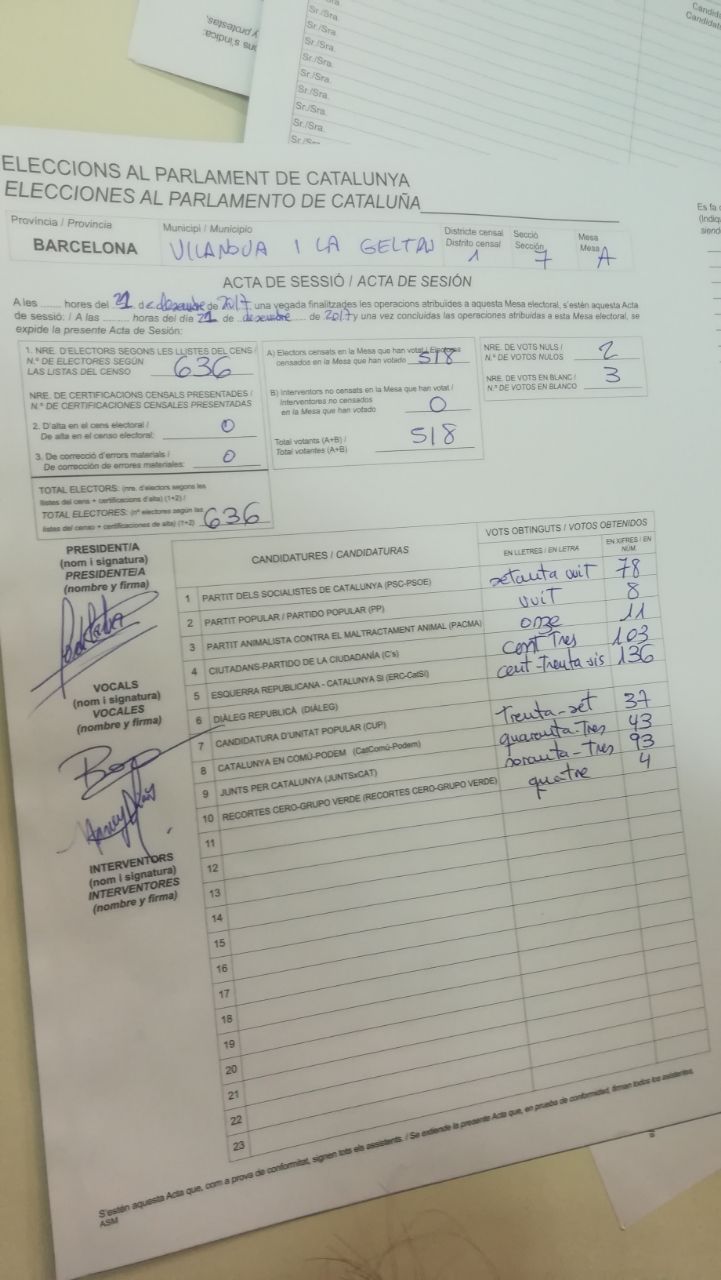 y protestas,
ons s'indica:
Sr./Sra.
Sr./Sra.
Sr./Sra.
Sr./Sra.
Sr./Sra.
Sr./Sra.
Sr./Sra.
Sr./Sra.
Candidat
ELECCIONS AL PARLAMENT DE CATALUNYA
ELECCIONES AL PARLAMENTO DE CATALUÑA
Província / Provincia
BARCELONA
Municipi / Municipio
VILANOVA I LA GELTRÚ
Districte censal
Distrito censal
1
Secció
Sección
7
Mesa
Mesa
A
Es fa
(Indiq
siend
ACTA DE SESSIÓ / ACTA DE SESIÓN
A les ........ hores del 21 de desembre de 2017, una vegada finalitzades les operacions atribuïdes a aquesta Mesa electoral, s'estén aquesta Acta
de sessió: / A las ........ horas del día 21 de desembre de 2017 y una vez concluidas las operaciones atribuidas a esta Mesa electoral, se
expide la presente Acta de Sesión:
1. NRE. D'ELECTORS SEGONS LES LLISTES DEL CENS /
N.º DE ELECTORES SEGÚN
LAS LISTAS DEL CENSO 636
NRE. DE CERTIFICACIONS CENSALS PRESENTADES /
N.º DE CERTIFICACIONES CENSALES PRESENTADAS
2. D'alta en el cens electoral /
De alta en el censo electoral: 0
3. De correcció d'errors materials /
De corrección de errores materiales: 0
TOTAL ELECTORS: (nre. d'electors segons les
llistes del cens + certificacions d'alta) (1+2) /
TOTAL ELECTORES: (nº electores según las
listas del censo + certificaciones de alta) (1+2) 636
A) Electors censats en la Mesa que han votat / Electores
censados en la Mesa que han votado 518
B) Interventors no censats en la Mesa que han votat /
Interventores no censados
en la Mesa que han votado 0
Total votants (A+B) /
Total votantes (A+B) 518
NRE. DE VOTS NULS /
N.º DE VOTOS NULOS 2
NRE. DE VOTS EN BLANC /
N.º DE VOTOS EN BLANCO 3
PRESIDENT/A
(nom i signatura)
PRESIDENTE/A
(nombre y firma)
VOCALS
(nom i signatura)
VOCALES
(nombre y firma)
INTERVENTORS
(nom i signatura)
INTERVENTORES
(nombre y firma)
CANDIDATURES / CANDIDATURAS
VOTS OBTINGUTS / VOTOS OBTENIDOS
EN LLETRES / EN LETRA
EN XIFRES / EN NÚM.
1 PARTIT DELS SOCIALISTES DE CATALUNYA (PSC-PSOE) setanta vuit 78
2 PARTIT POPULAR / PARTIDO POPULAR (PP) vuit 8
3 PARTIT ANIMALISTA CONTRA EL MALTRACTAMENT ANIMAL (PACMA) onze 11
4 CIUTADANS-PARTIDO DE LA CIUDADANÍA (C's) cent Tres 103
5 ESQUERRA REPUBLICANA - CATALUNYA SÍ (ERC-CatSí) cent-trenta sis 136
6 DIÀLEG REPUBLICÀ (DIÀLEG)
7 CANDIDATURA D'UNITAT POPULAR (CUP) trenta-set 37
8 CATALUNYA EN COMÚ-PODEM (CatComú-Podem) quaranta-Tres 43
9 JUNTS PER CATALUNYA (JUNTSxCAT) noranta-Tres 93
10 RECORTES CERO-GRUPO VERDE (RECORTES CERO-GRUPO VERDE) quatre 4
11
12
13
14
15
16
17
18
19
20
21
22
23
S'estén aquesta Acta que, com a prova de conformitat, signen tots els assistents. / Se extiende la presente Acta que, en prueba de conformidad, firman todos los asistentes.
ASM